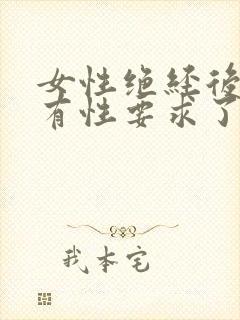 女性绝经後
有性要求了
我本宅